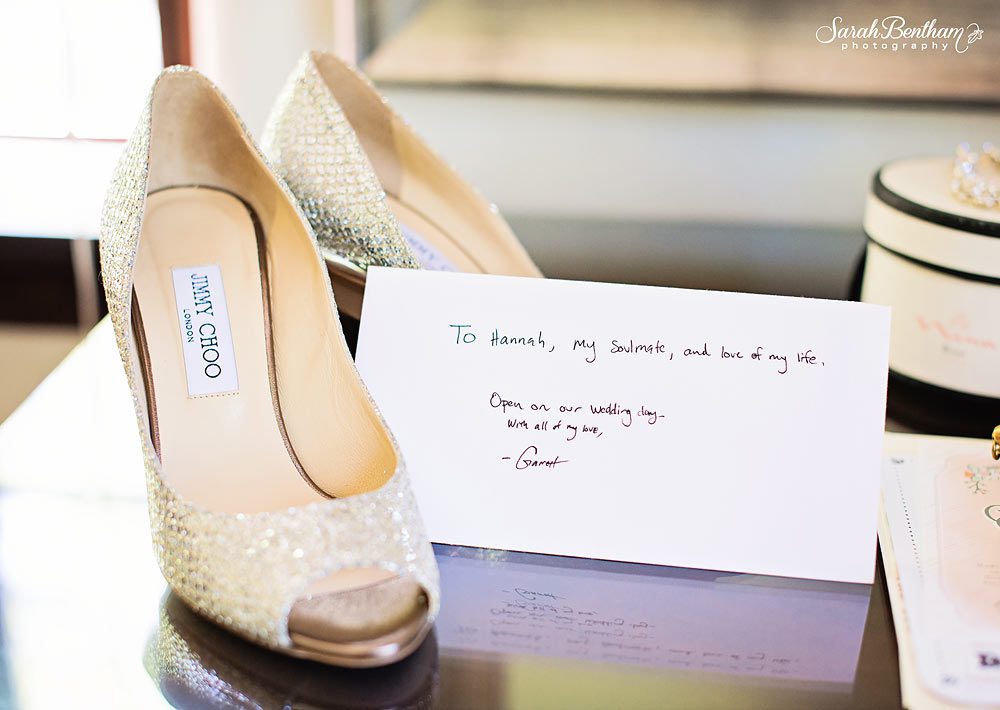 Sarah Bentham
photography
JIMMY CHOO
LONDON
JIMMY CHOO
To Hannah, my soulmate, and love of my life.
Open on our wedding day—
With all of my love,
- Garrett